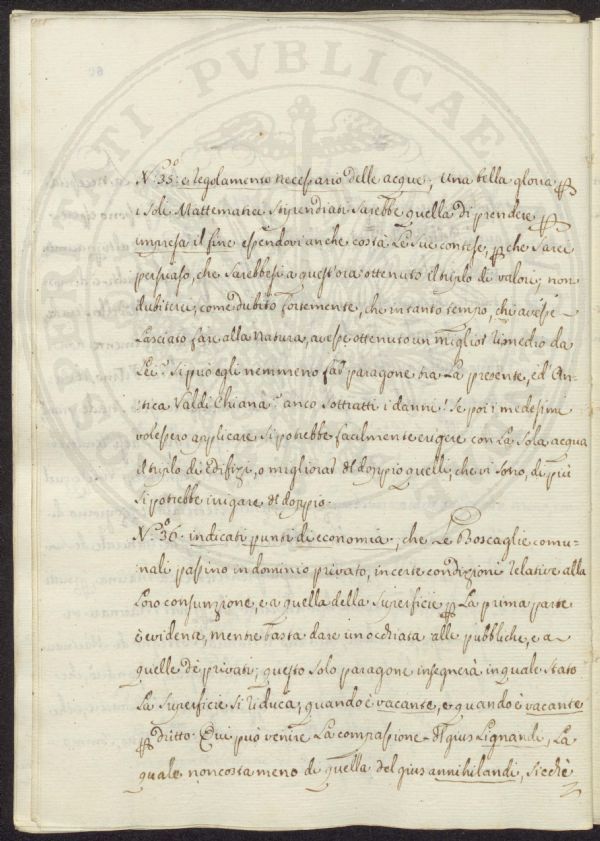 PROSPERITATI PVBLICAE
N.º 35: e regolamento necessario delle acque, una bella gloria p
i Soli Mattematici Stipendiati Sarebbe quella di prendere p
impresa il fine essendovi anche costà Le Sue contese, p che Sarei
persuaso, che Sarebbesi a quest'ora ottenuto il triplo di valori, non
dubiterei, come dubito fortemente, che in tanto tempo, che avesse
Lasciato fare alla Natura, avesse ottenuto un miglior rimedio da
Lei? Si può egli nemmeno far paragone tra La presente, ed An-
tica Valdi Chiana? anco Sottratti i danni! Se poi i medesimi
volessero applicare Si potrebbe facilmente erigere con La Sola acqua
il triplo di Edifizi, o migliorar del doppio quelli, che vi Sono, di più
Si potrebbe irrigare del doppio.
N.º 36. indicati punti di economia, che Le Boscaglie comu-
nali passino in dominio privato, incerte condizioni relative alla
Loro consunzione, e a quella della Superficie p La prima parte
è evidente, mentre basta dare un occhiata alle pubbliche, e a
quelle de privati; questo Solo paragone insegnerà in quale Stato
La Superficie Si riduca, quando è vacante, e quando è vacante
p diritto. Qui può venire La compassione del gius Lignandi, La
quale non costa meno di quella del gius annihilandi, Sicchè